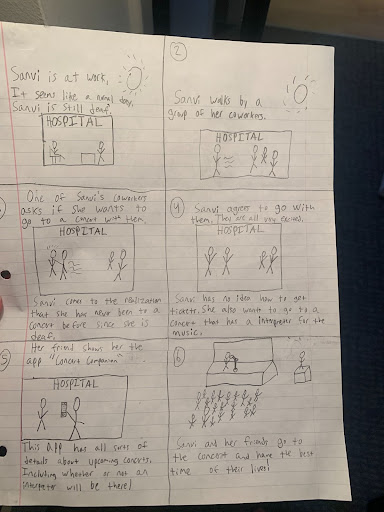 Sanvi is at work,
It seems like a normal day,
Sanvi is still deaf.
HOSPITAL
2
Sanvi walks by a
group of her coworkers.
HOSPITAL
One of Sanvi's coworkers
asks if she wants to
go to a concert with them.
HOSPITAL
Sanvi comes to the realization
that she has never been to a
concert before since she is
deaf.
4
Sanvi agrees to go with
them. They are all very excited.
HOSPITAL
Sanvi has no idea how to get
tickets. She also want to go to a
concert that has a interpreter for the
music.
5
Her friend shows her the
app "Concert Companion"
HOSPITAL
This app has all sorts of
details about upcoming concerts.
Including whether or not an
interpretor will be there!
6
Sanvi and her friends go to
the concert and have the best
time of their lives!